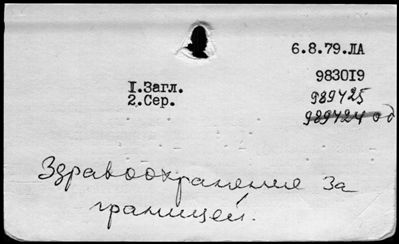 6.8.79.ЛА
1.Загл.
2.Сер.
983019
989425
989424 од
Здравоохранение за
границей.